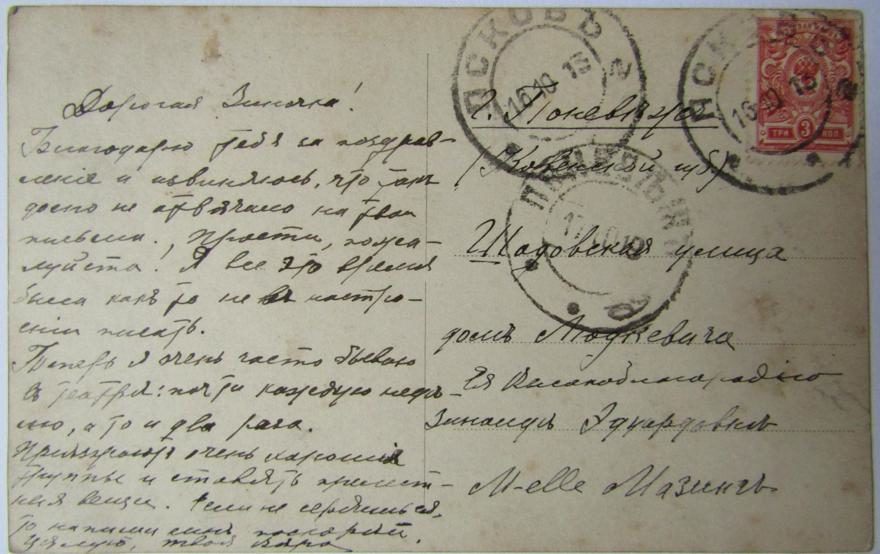 Дорогая Зиночка!
Благодарю тебя за поздрав-
ленiе и извиняюсь, что такъ
долго не отвѣчала на твои
письма. Прости, пожа-
луйста! Я все это время
была какъ то не въ настро-
енiи писать.
Теперь я очень часто бываю
въ театрѣ: почти каждую недѣ-
лю, а то и два раза.
Прiѣзжаютъ очень хорошiя
труппы и ставятъ прелест-
ныя вещи. Если не сердишься,
то напиши мнѣ поскорѣй.
Цѣлую, твоя
ПСКОВЪ 2
16 10 13
ПСКОВЪ
16 10 13
ТРИ 3 КОП.
г. Поневѣжъ
(Ковенской губ)
Шадовская улица
домъ Модкевича
Ея Высокоблагородiю
Зинаидѣ Эдуардовнѣ
M-elle Мазингъ